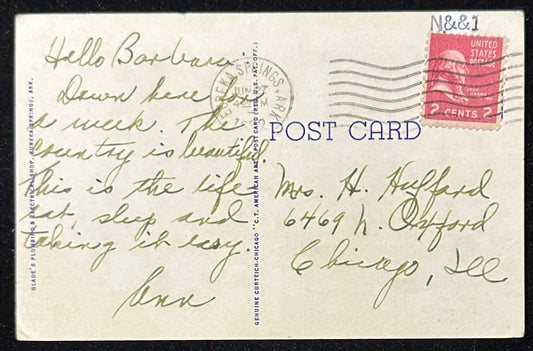 N&&1
UNITED
STATES
POSTAGE
2 CENTS 2
EUREKA SPRINGS, ARK.
JUN
POST CARD
Hello Barbara:
Down here
a week. The
country is beautiful.
this is the life
eat, sleep and
taking it easy.
Ann
Mrs. H. Hufford
6469 N. Oxford
Chicago, Ill
GLADE'S PLUMBING & ELECTRICAL SHOP, EUREKA SPRINGS, ARK.
GENUINE CURTEICH-CHICAGO "C.T. AMERICAN ART" POST CARD (REG. U.S. PAT. OFF.)